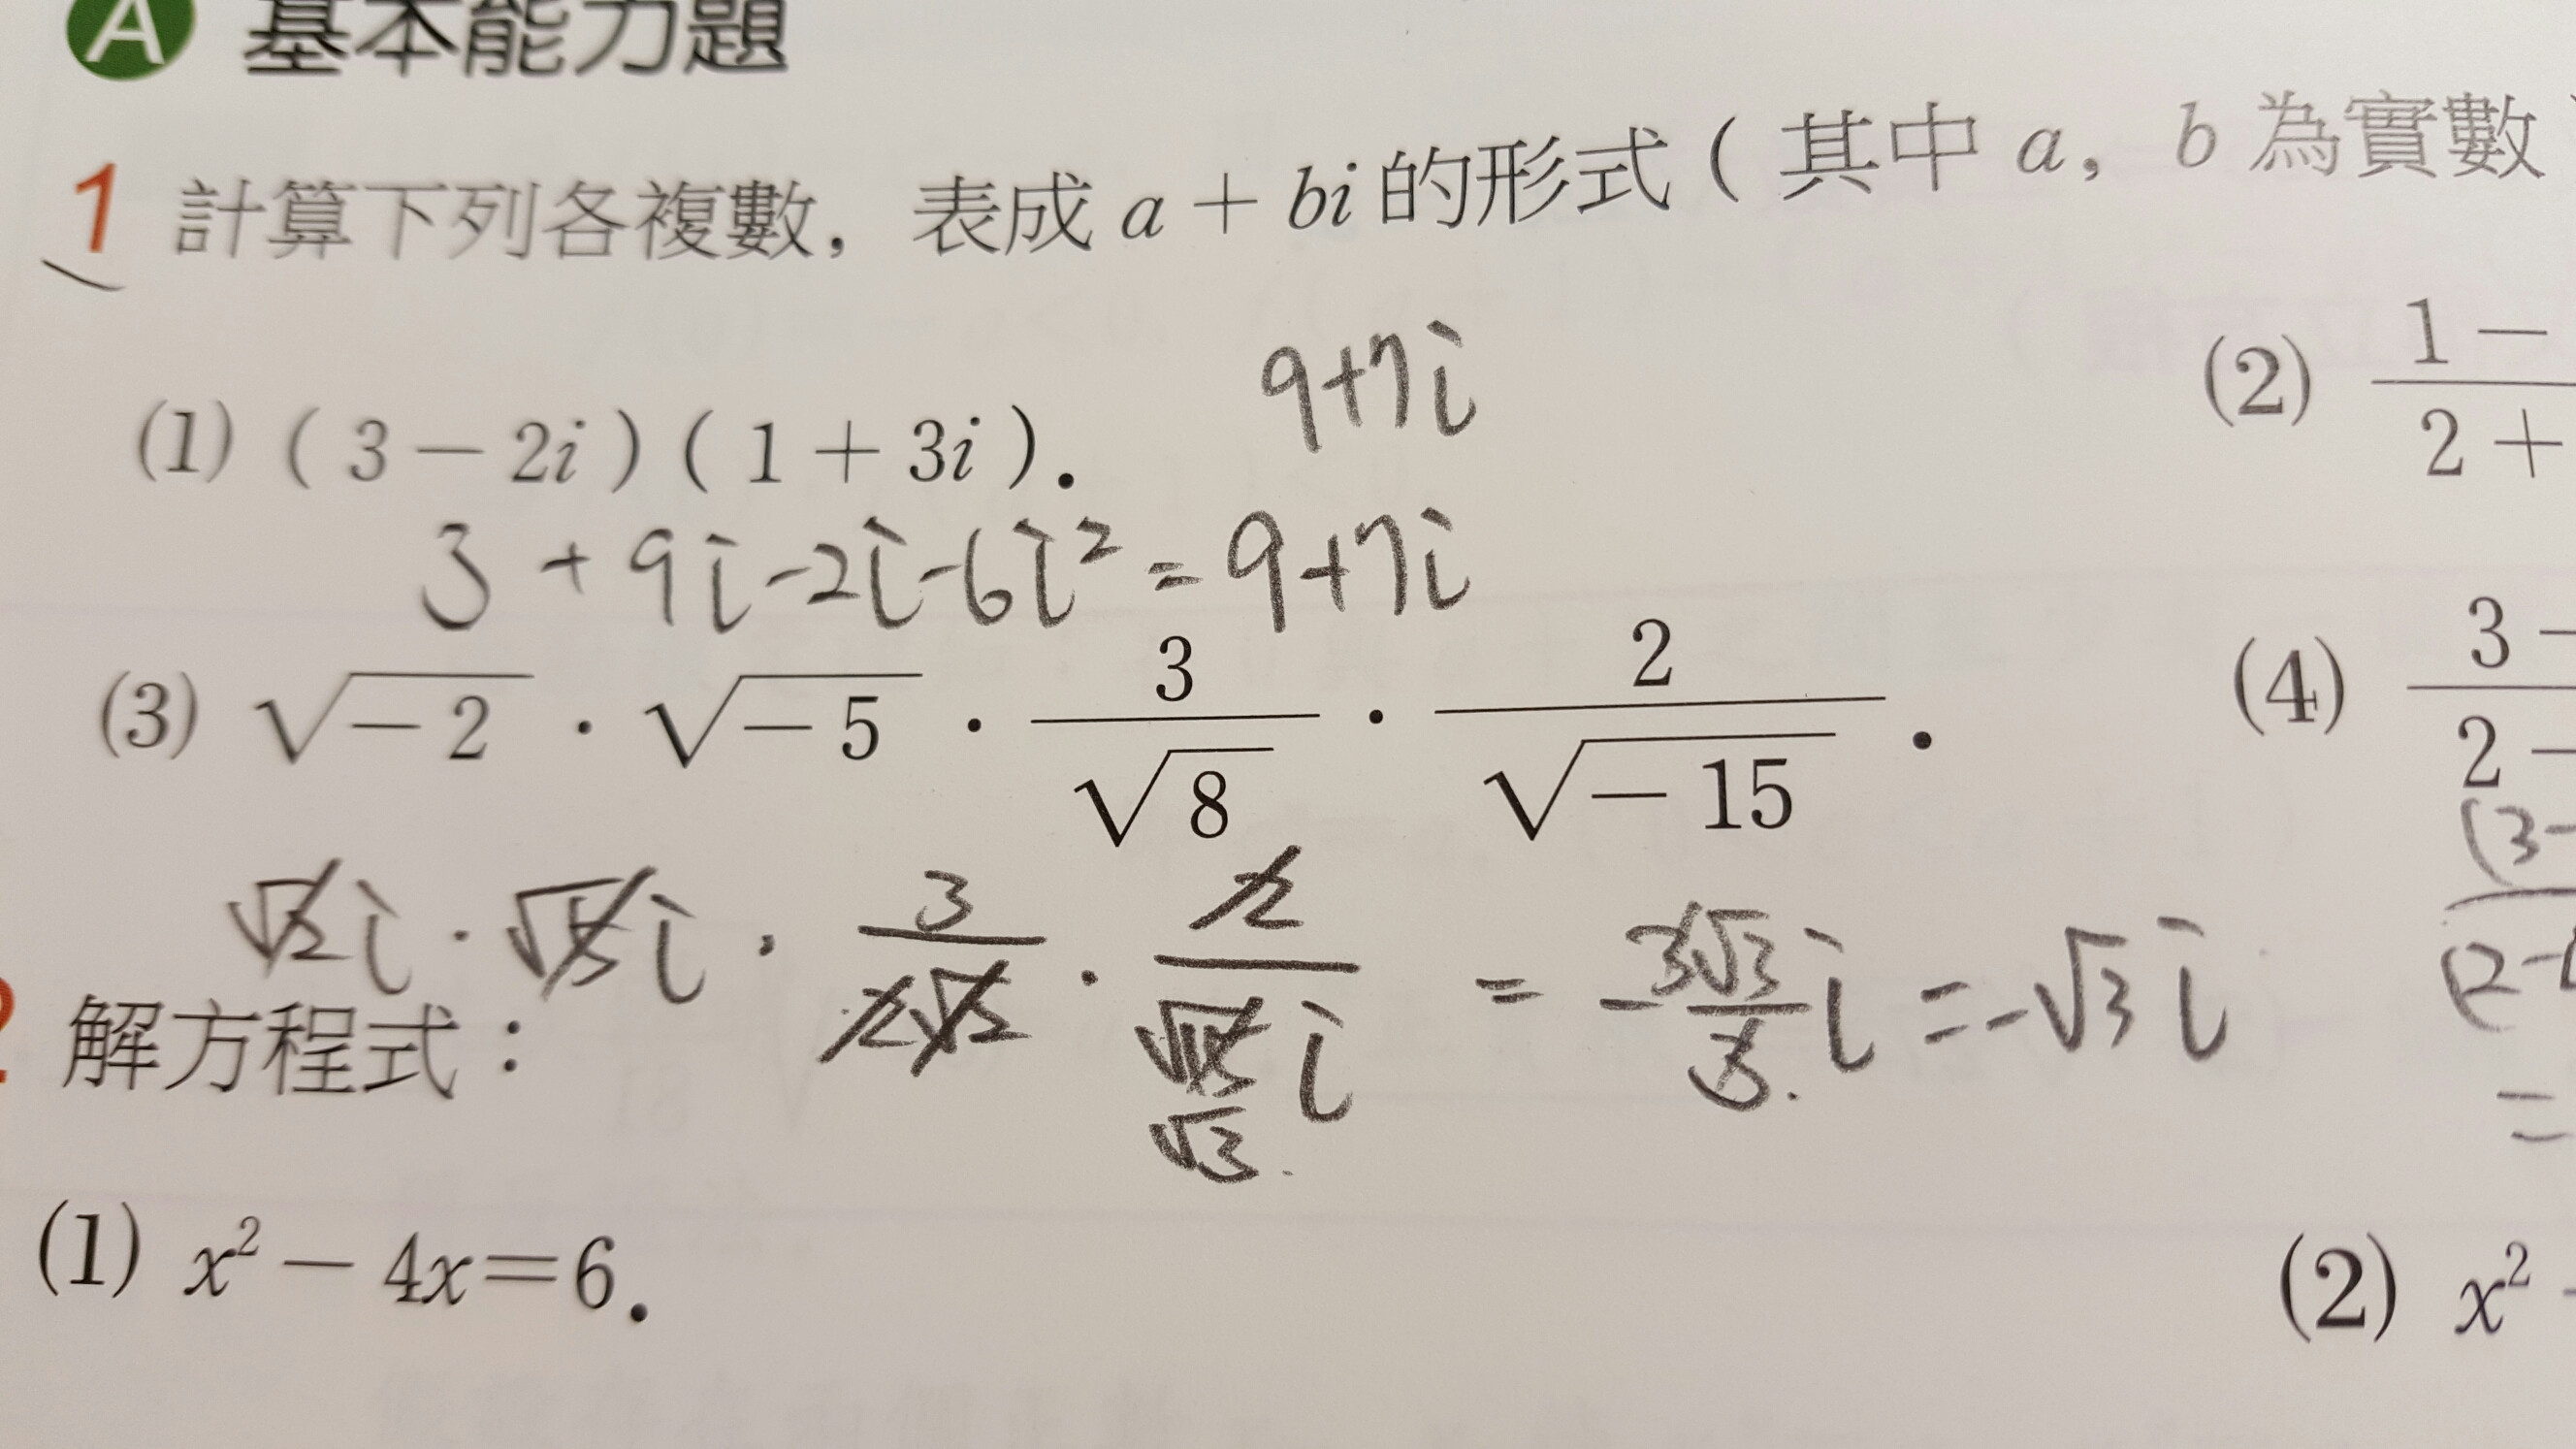 A 基本能力題
1 計算下列各複數，表成 a + bi 的形式（其中 a，b 為實數
9+7i
(1) (3 − 2i)(1 + 3i). (2) 1 − / 2 +
3 + 9i - 2i - 6i² = 9+7i
(3) √−2 · √−5 · 3/√8 · 2/√−15 . (4) 3 − / 2 −
√2i · √5i · 3/2√2 · 2/√15i = -3√3/3 i = -√3 i
√3
(3-
(2-
=
解方程式：
(1) x² − 4x = 6. (2) x²